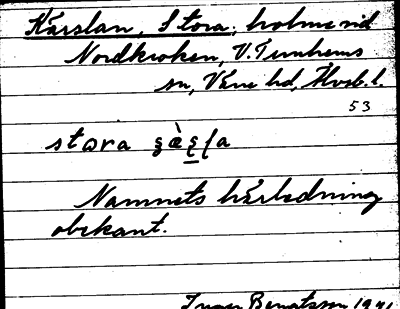 Kärslan, Stora; holme vid
Nordkroken, V. Tunhems
sn, Väne hd, Älvsb. l.
53
stora
Namnets härledning
obekant.
Ivar Bengtsson